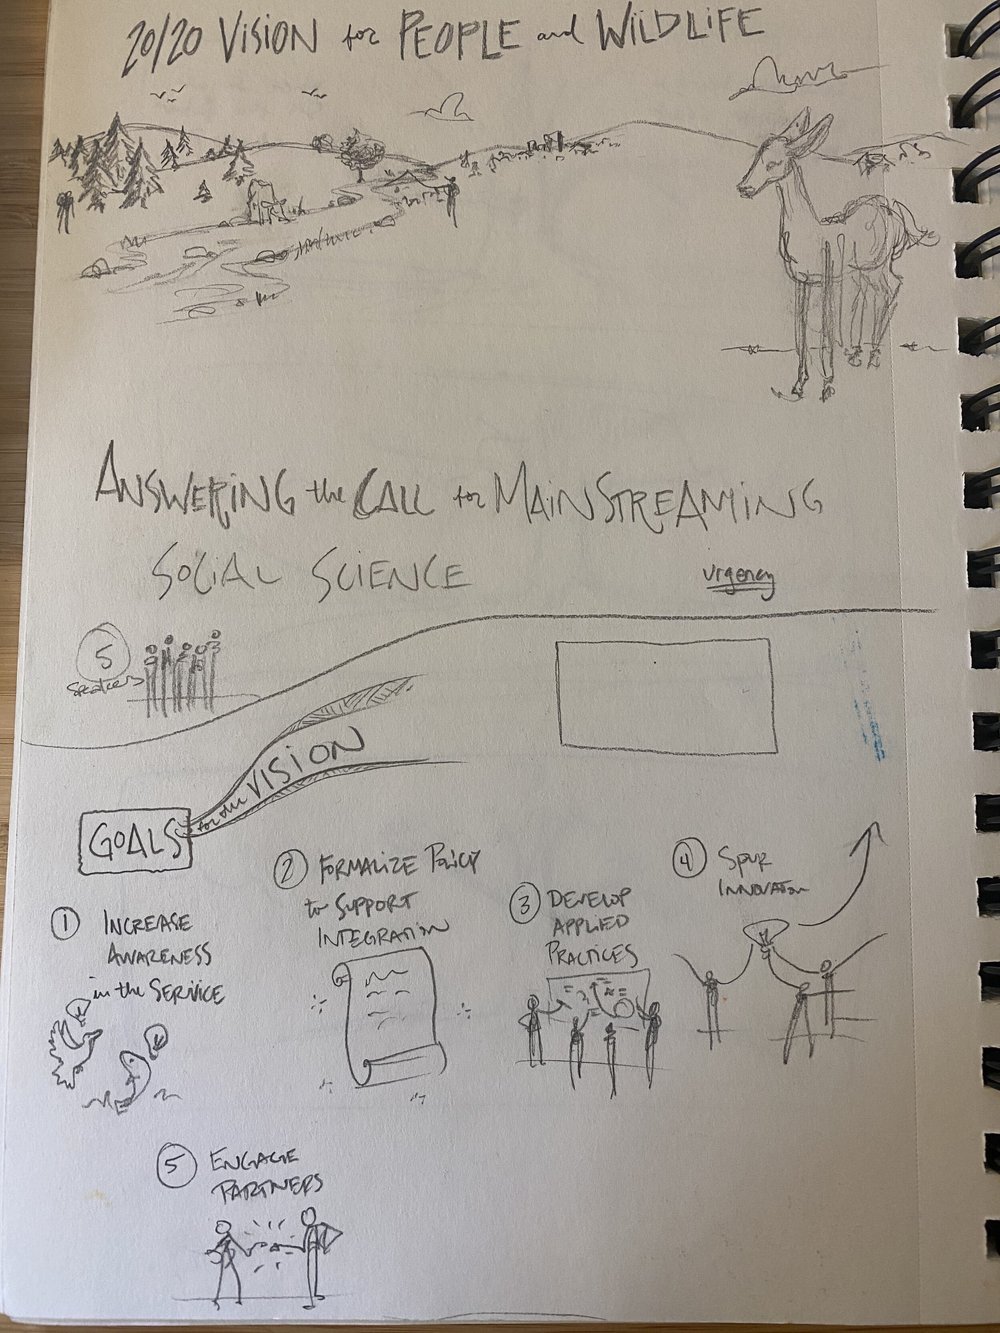 20/20 VISION for PEOPLE and WILDLIFE
ANSWERING the CALL for MAINSTREAMING
SOCIAL SCIENCE
urgency
5
speakers
GOALS for our VISION
1 INCREASE
AWARENESS
in the SERVICE
2 FORMALIZE POLICY
to SUPPORT
INTEGRATION
3 DEVELOP
APPLIED
PRACTICES
4 SPUR
INNOVATION
5 ENGAGE
PARTNERS